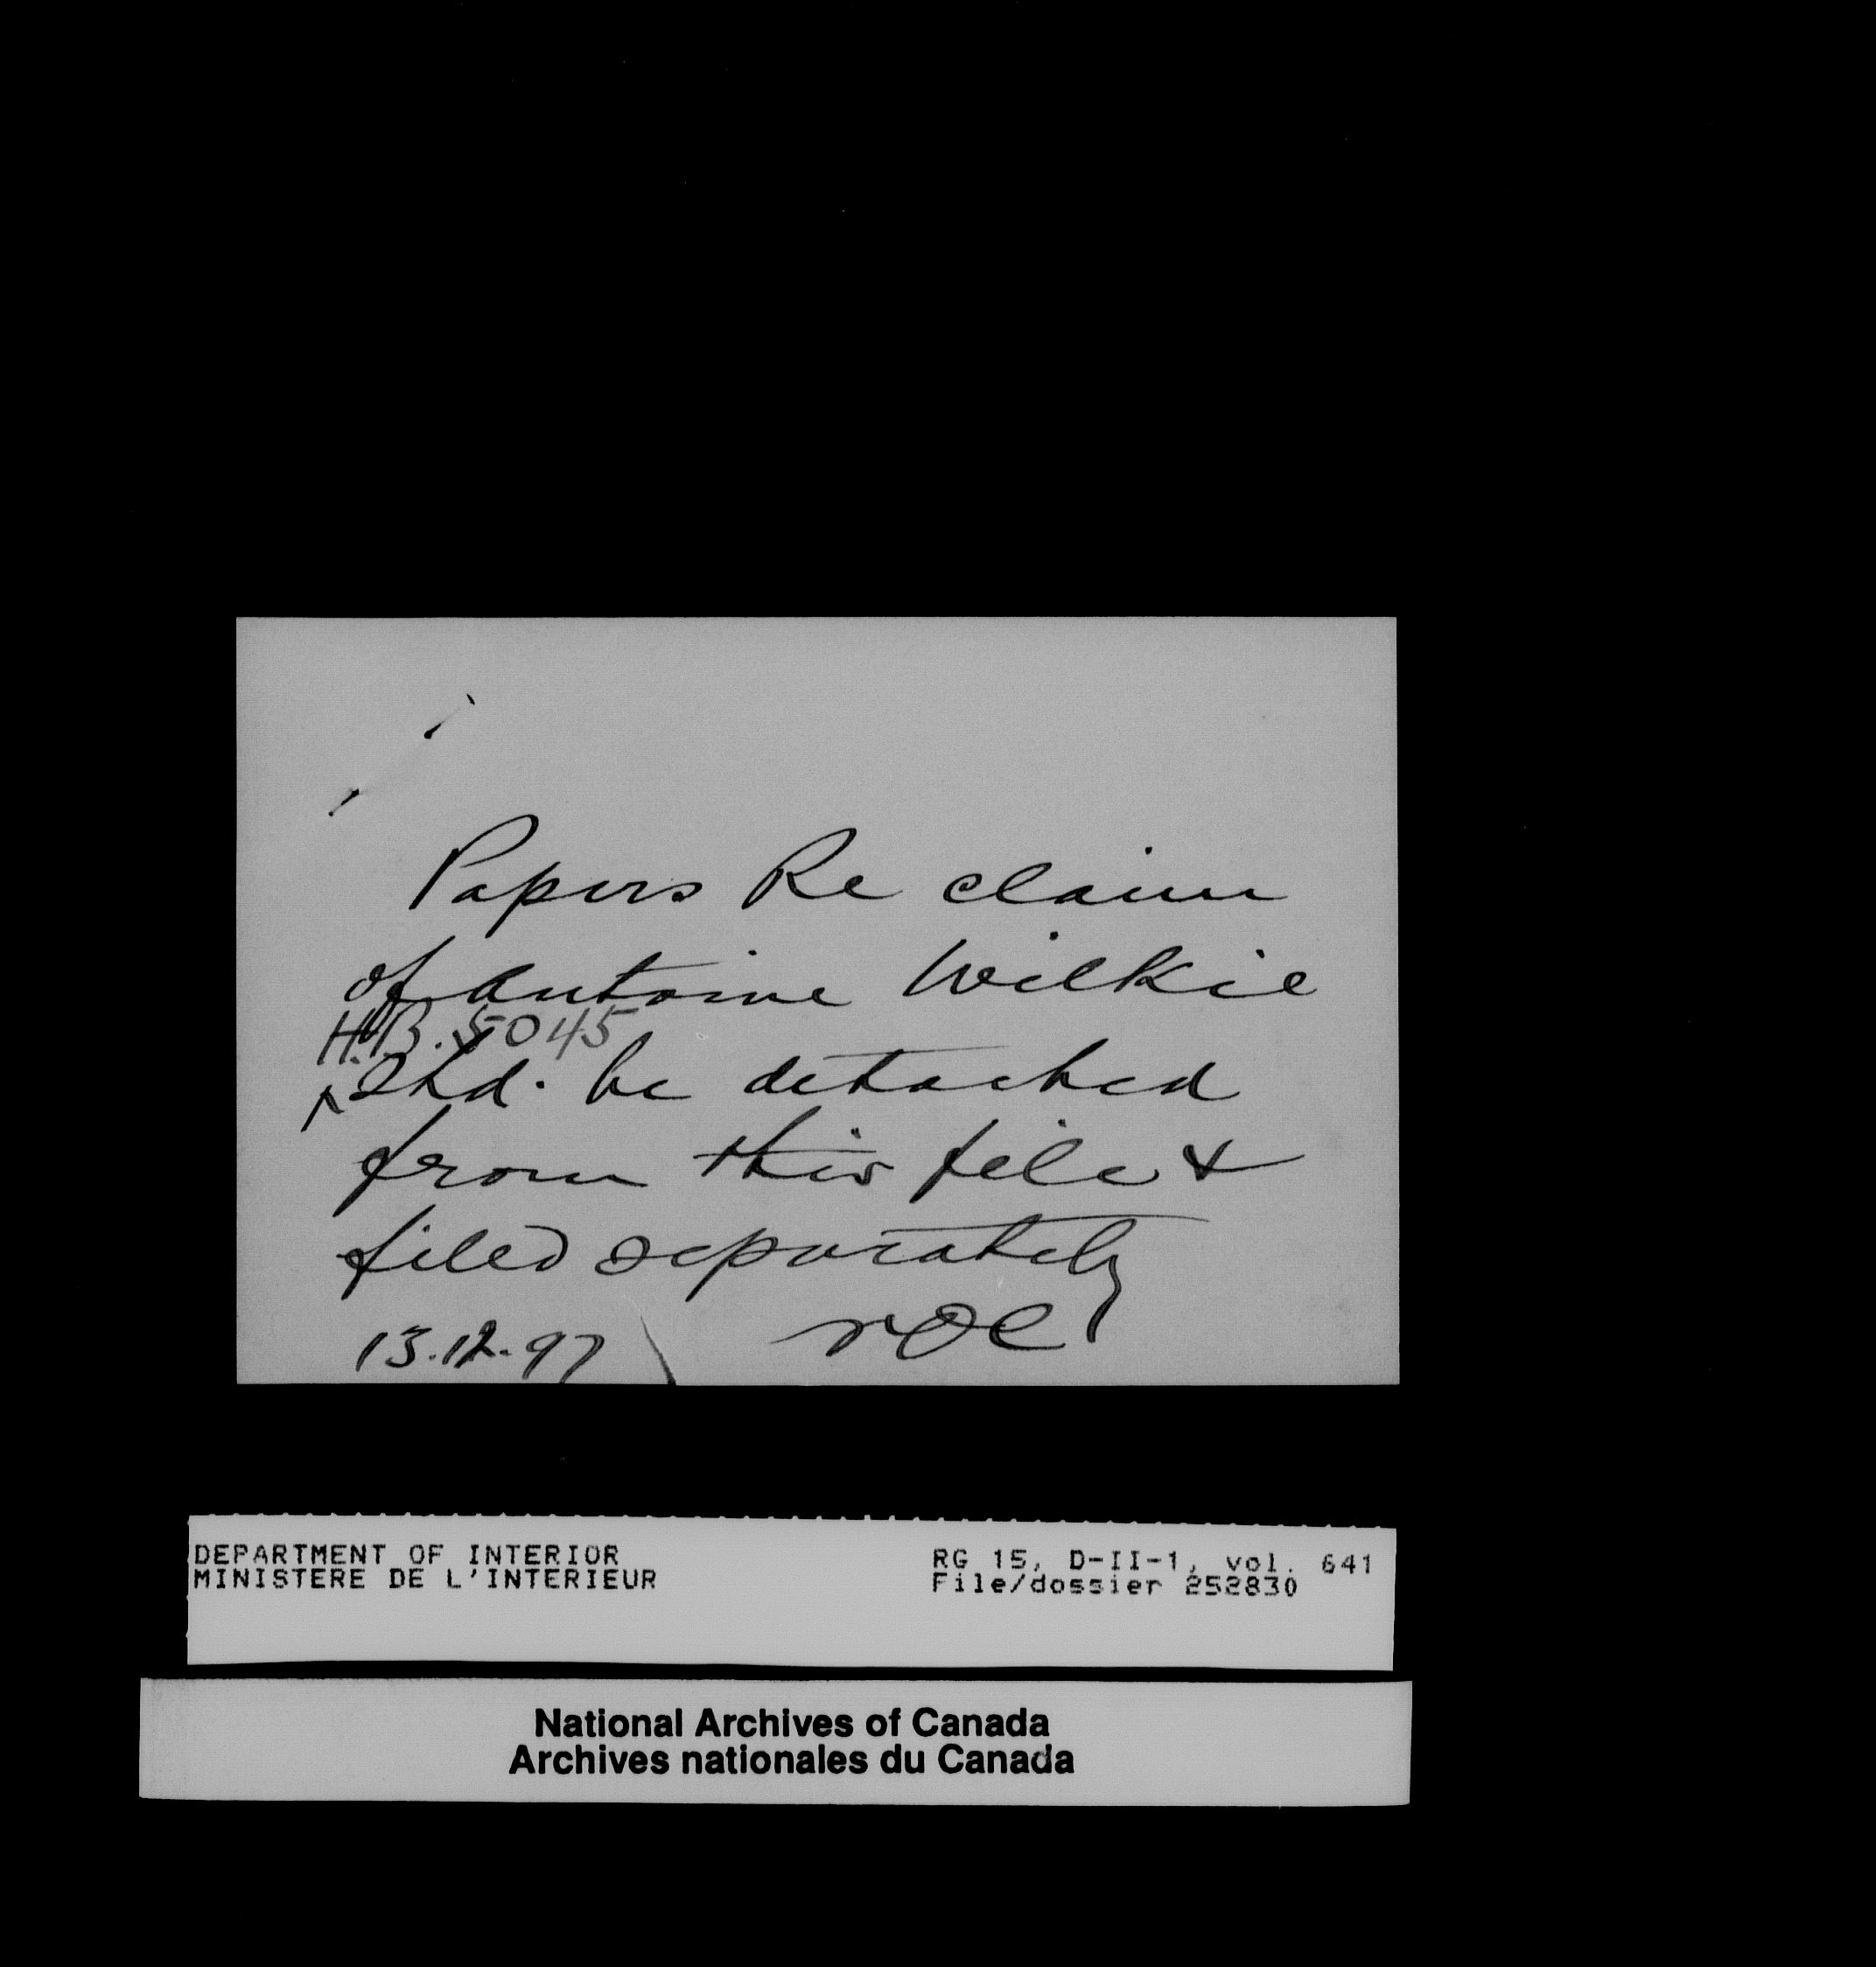 Papers Re claim
of Antoine Wilkie
H.B. 5045
Shd. be detached
from this file &
filed separately
13.12.97
DEPARTMENT OF INTERIOR RG 15, D-II-1, vol. 641
MINISTERE DE L'INTERIEUR File/dossier 252830
National Archives of Canada
Archives nationales du Canada